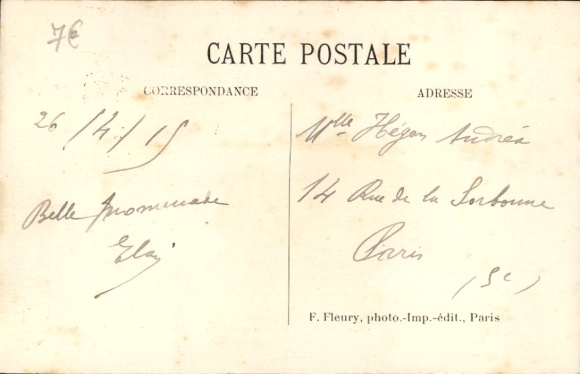 7€
CARTE POSTALE
CORRESPONDANCE
26/4/15
Belle promenade
ADRESSE
Mlle Hégen Andréa
14 Rue de la Sorbonne
Paris
(5e)
F. Fleury, photo.-Imp.-édit., Paris